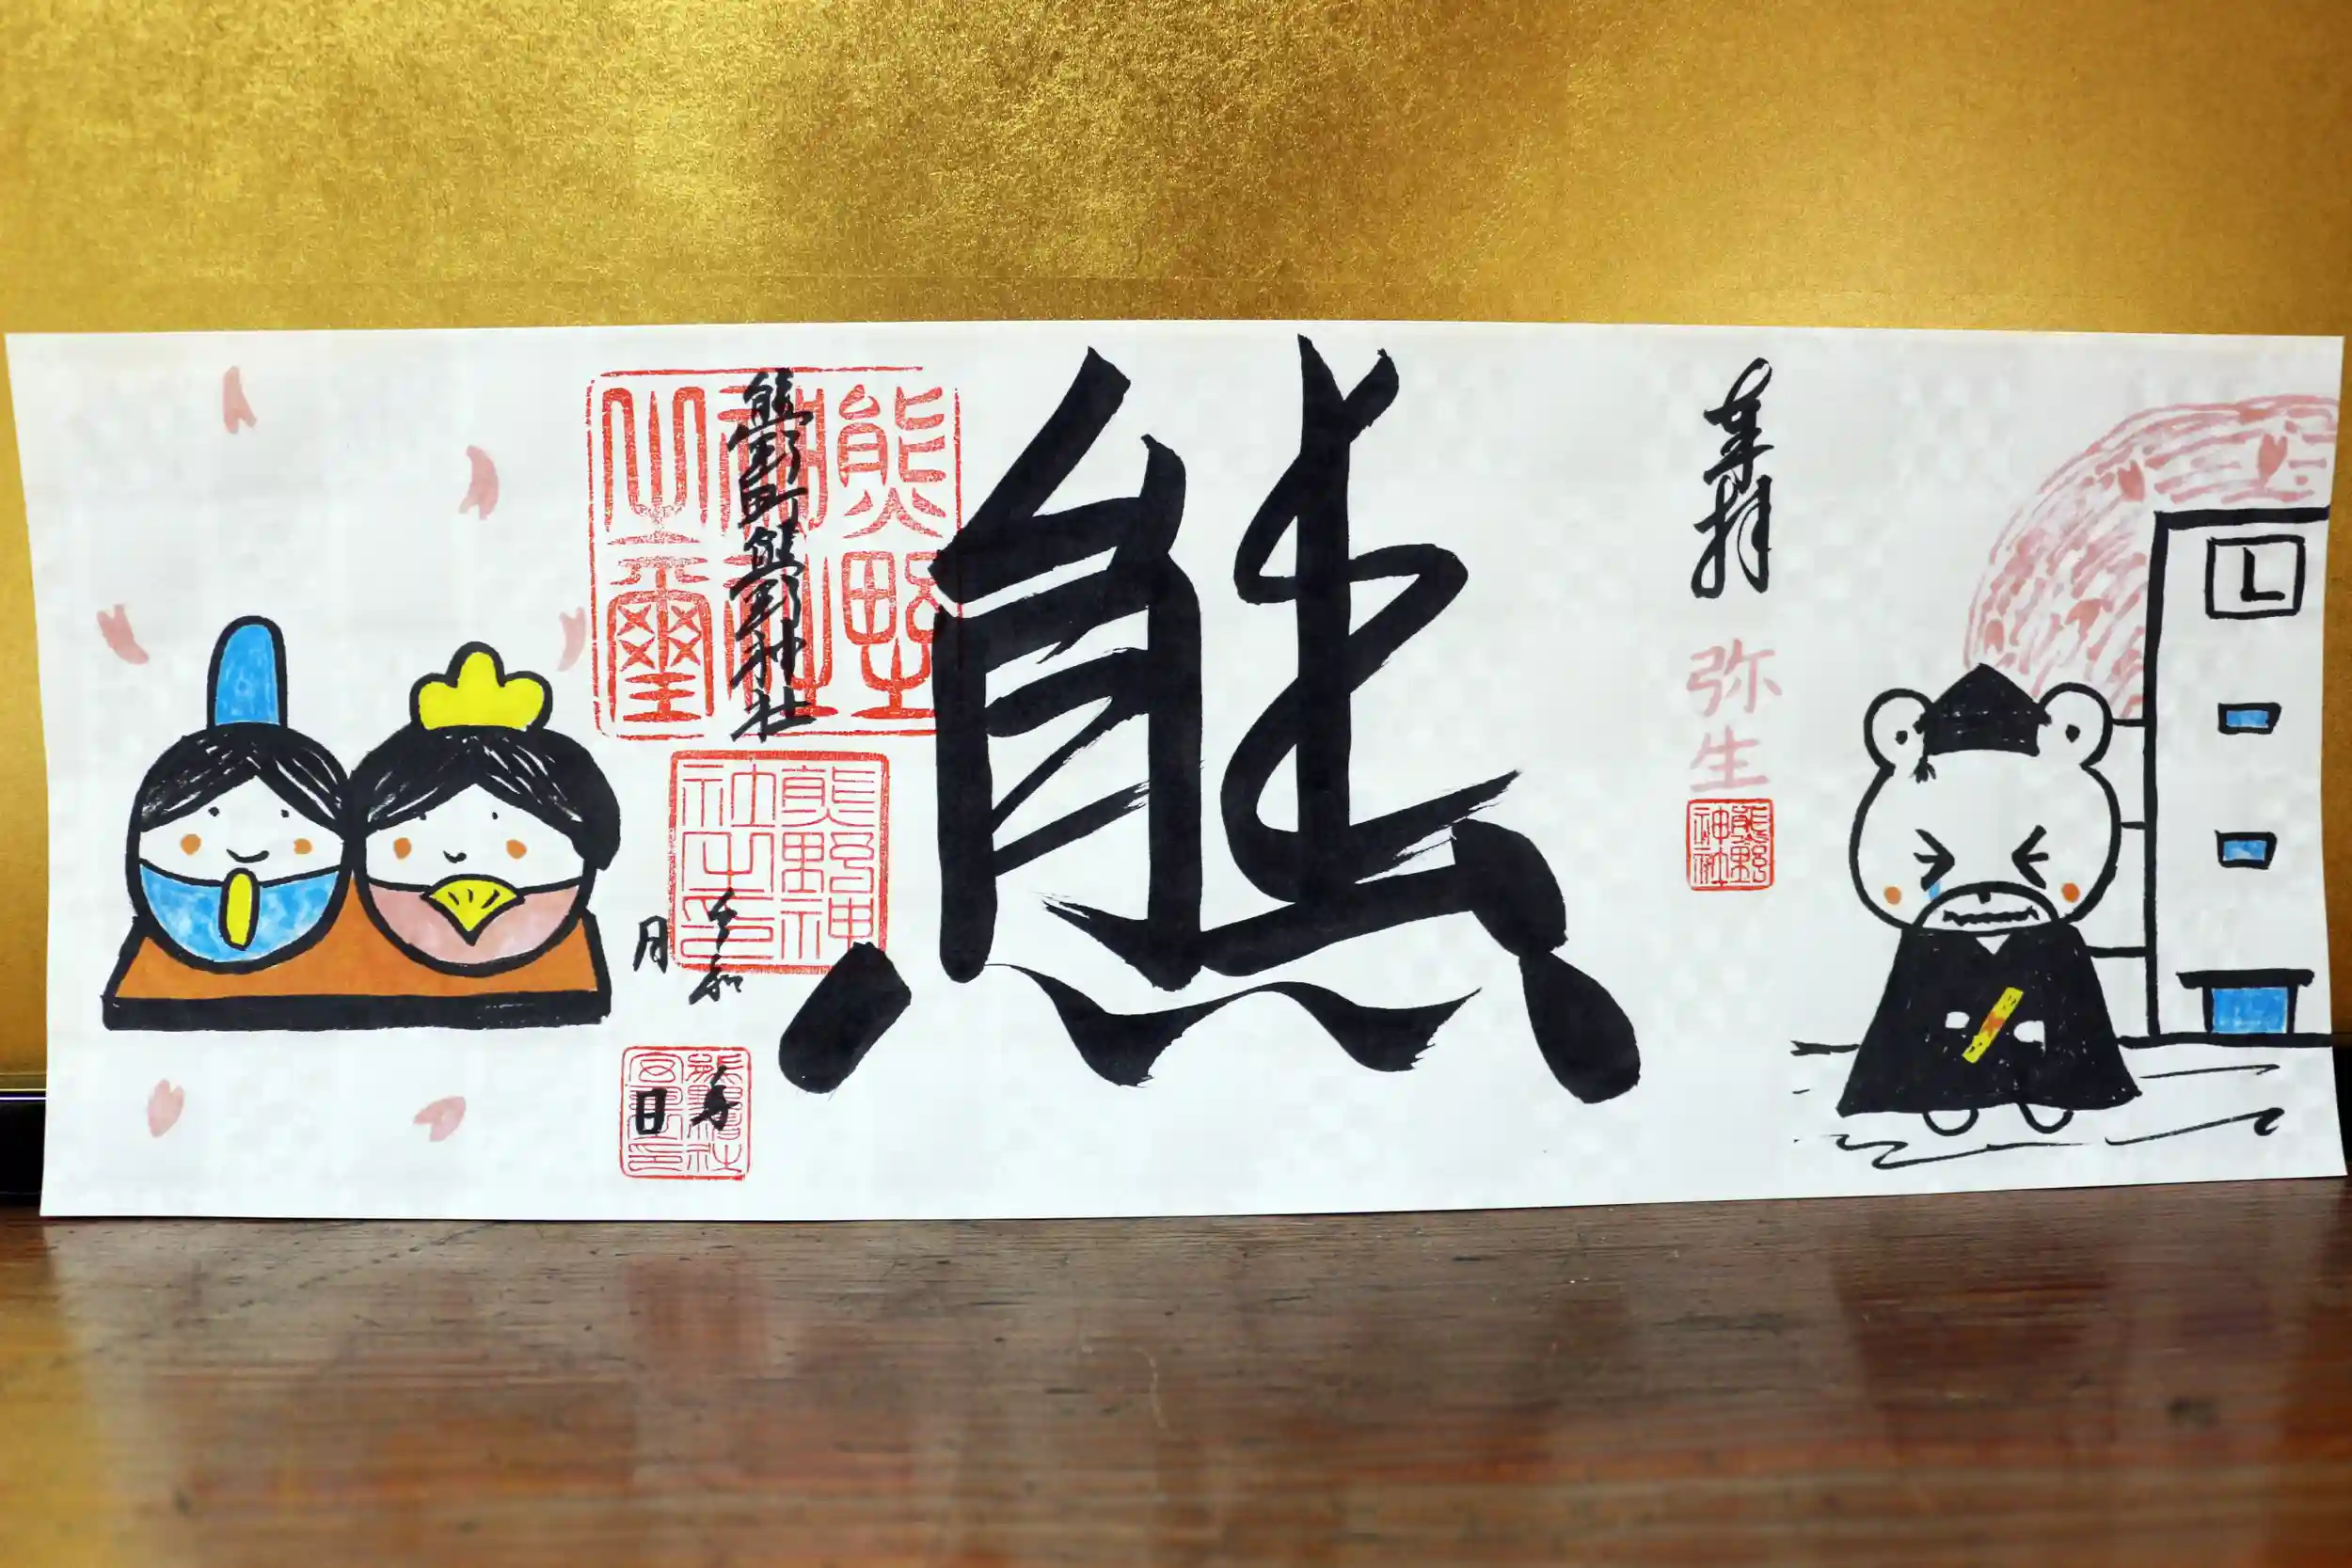 奉拝
弥生
熊野
神社
熊
熊野
神社
之璽
熊野町熊野神社
熊野神
社之印
令和
年
月
日